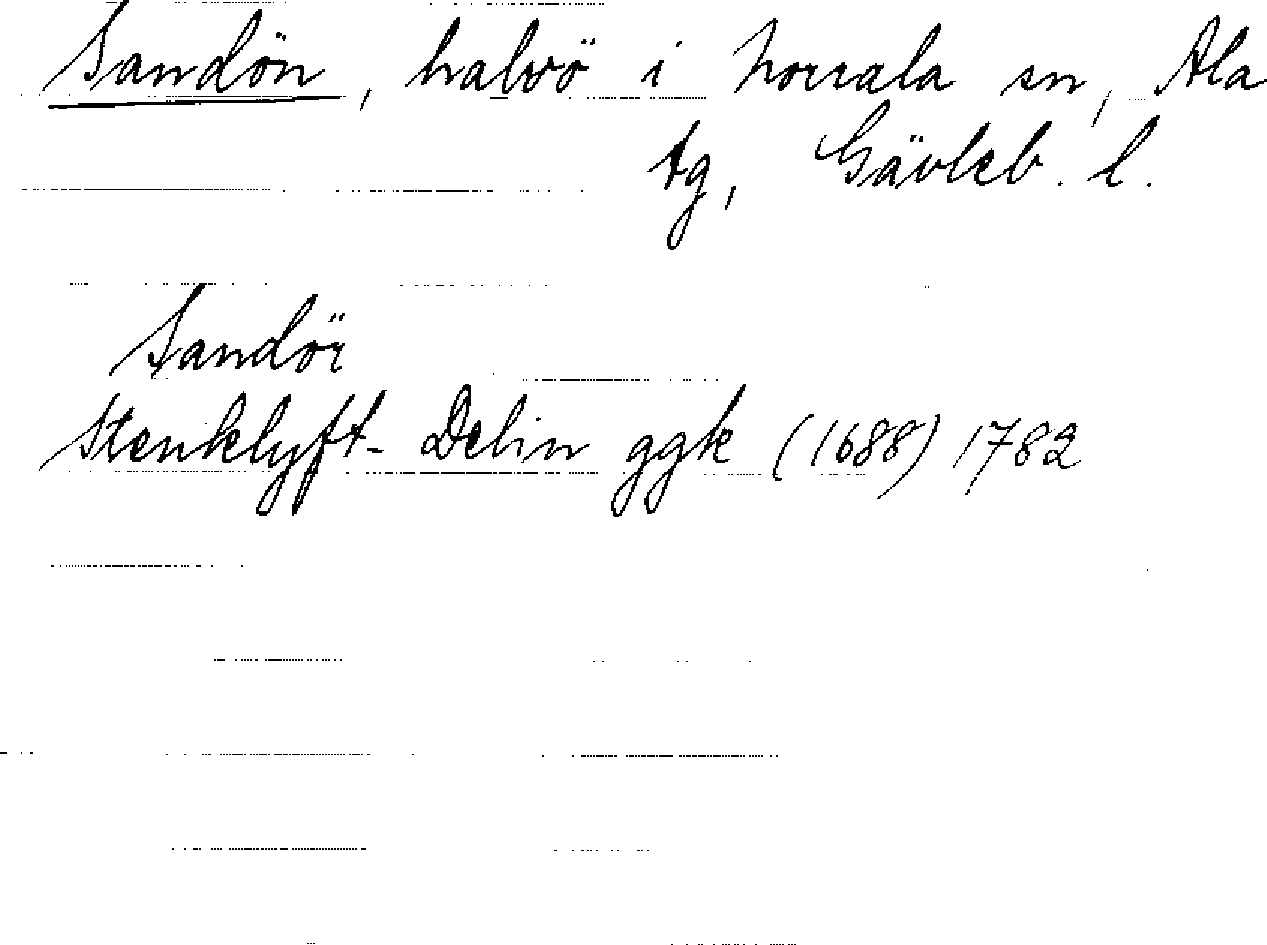 Sandön, halvö i Norrala sn, Ala
tg, Gävleb. l.
Sandör
Stenklyft- Delin ggk (1688) 1782